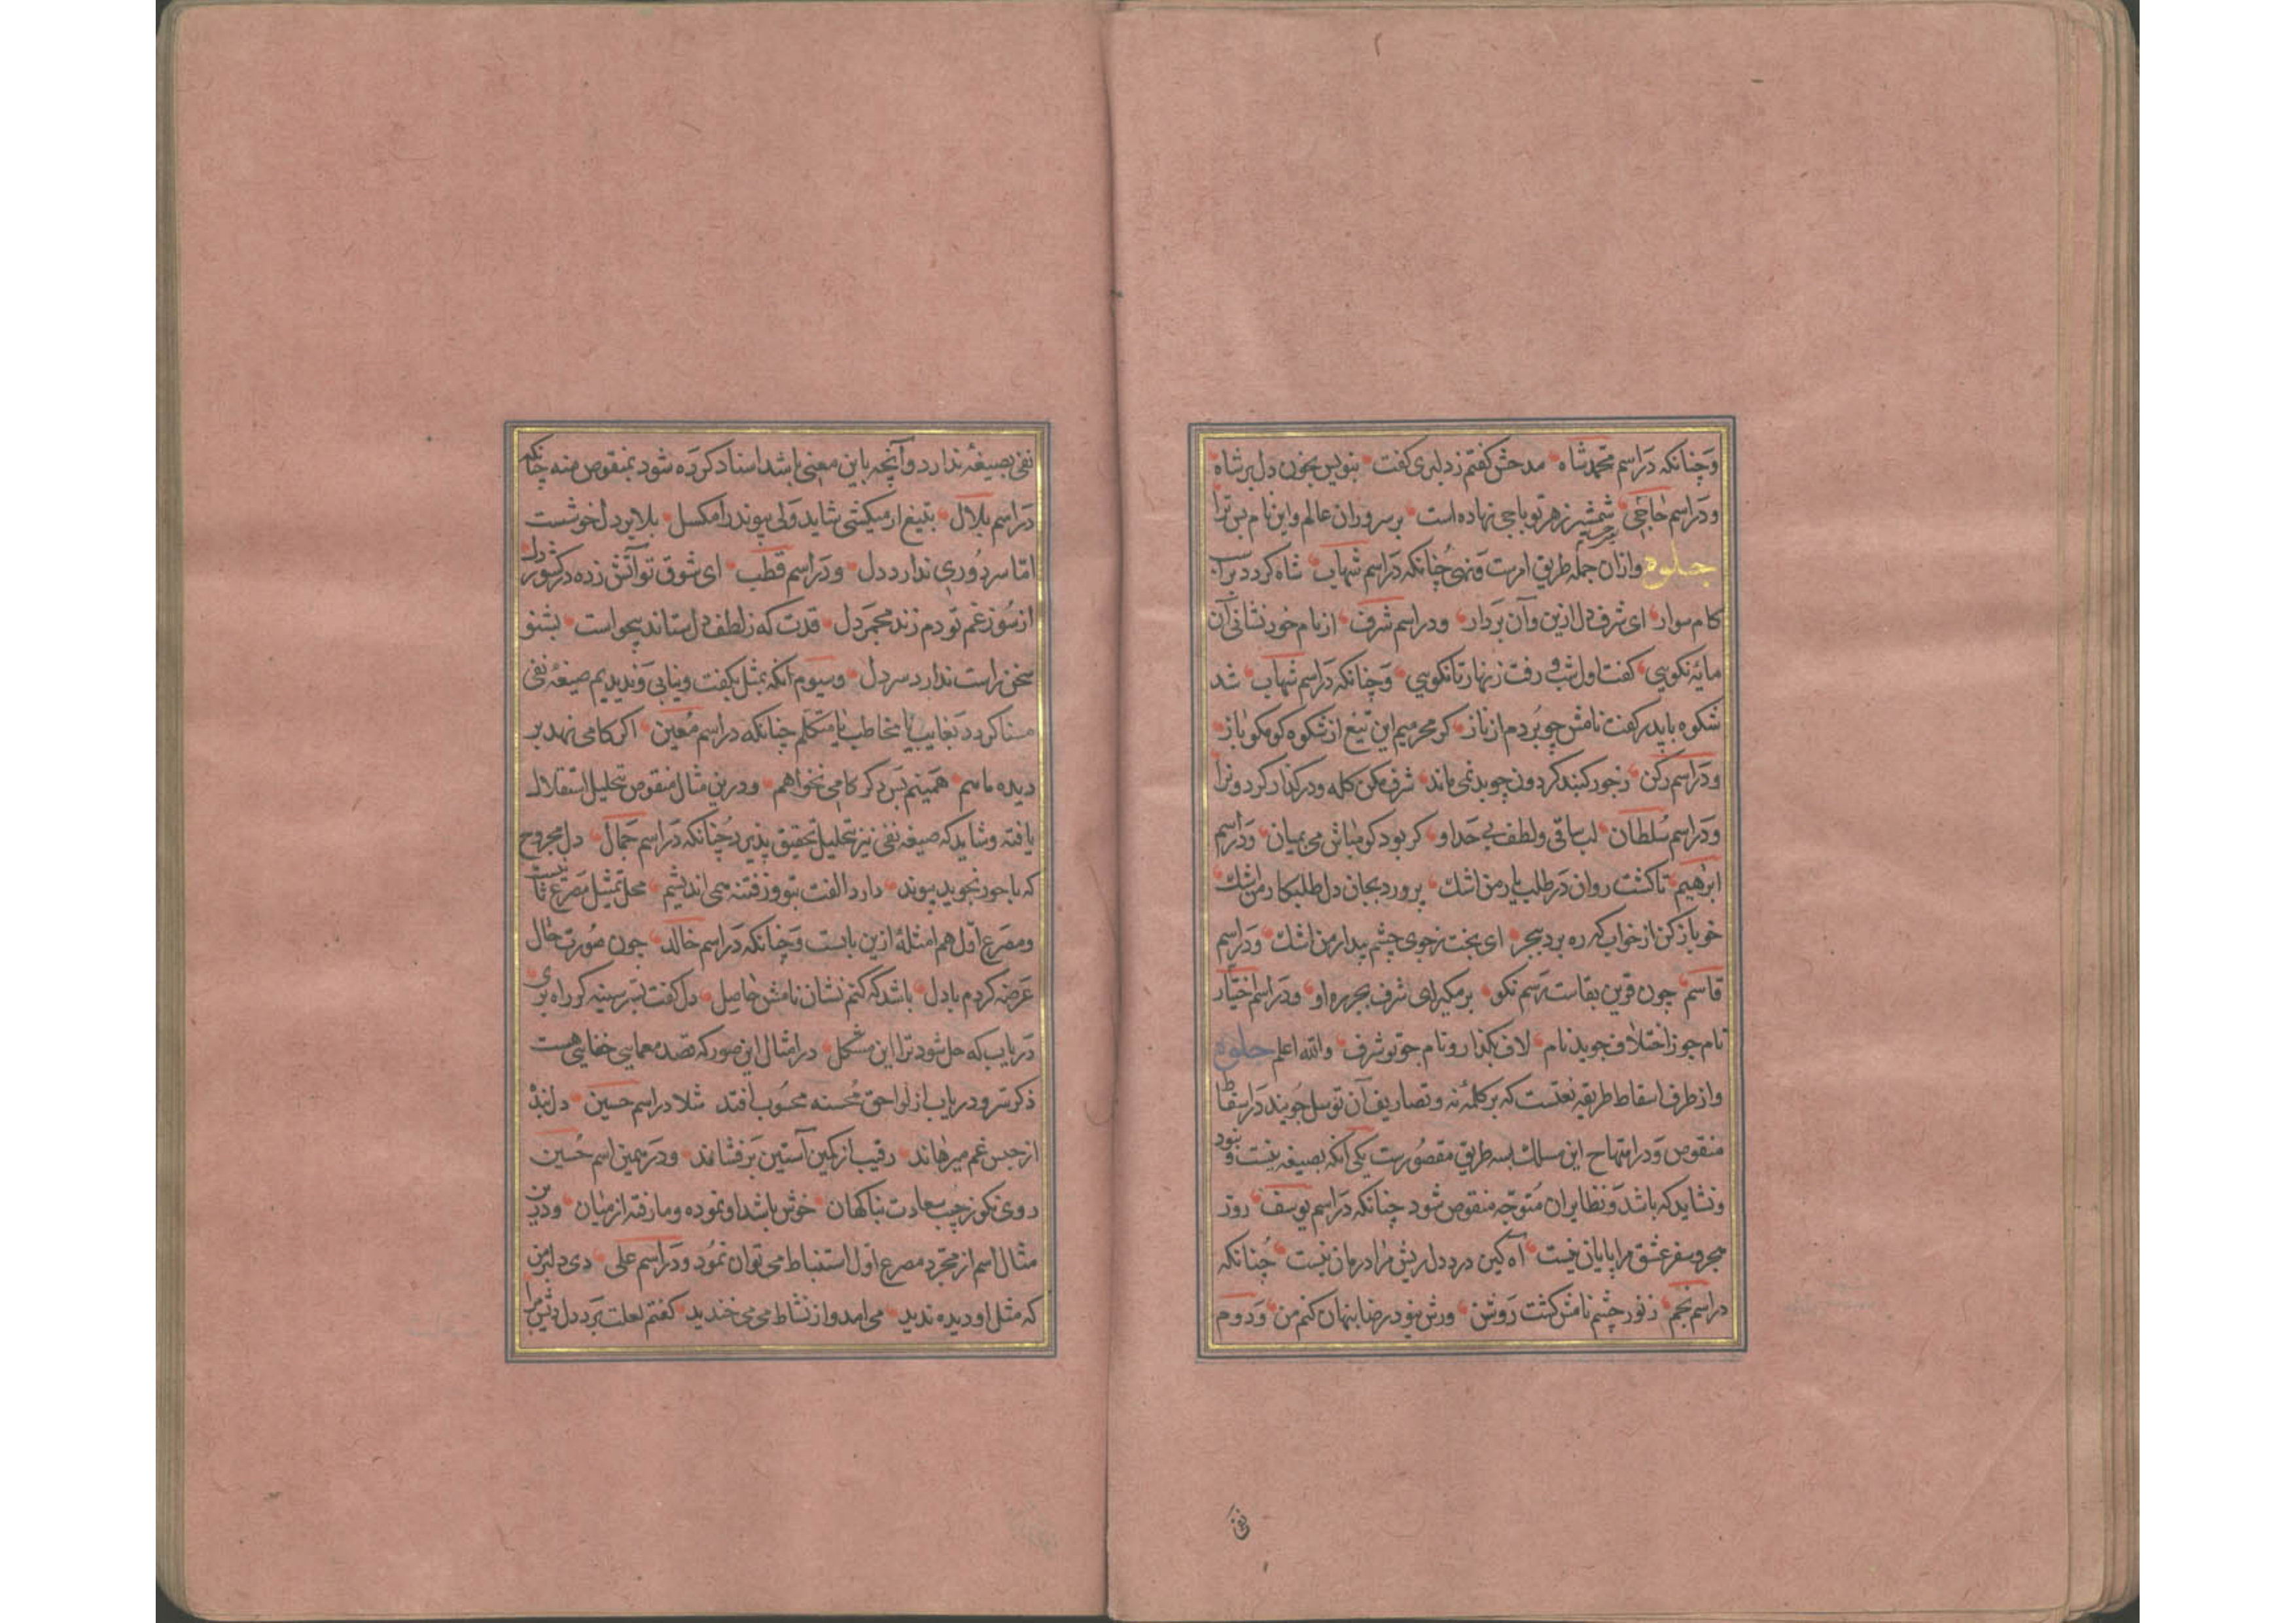 وچنانکه دراسم محمدشاه مدحش گفتم زدلبری گفت بنویس بخون دل برشاه
ودراسم حاجی شمشیر زهر تو باجی نهاده است بر سروران عالم واین نام بس ترا
جلوه وازان جمله طریق امرست ونهی چنانکه دراسم شهاب شاه کردد
کام سوار ای شرف دل ازین وآن بردار ودراسم شرف از نام خود نشانی آن
مایه نکویی کفت اول شب و رفت زنهار تا نکویی وچنانکه دراسم شهاب شد
شکوه باید کفت نامش چو بردم از ناز کر محرمیم این تیغ از شکوه کو مکو باز
ودراسم رکن زجور کنبد کردون چو بد نمی ماند شرف مکن کله ودرکذار کردونرا
ودراسم سلطان لب ساقی ولطف بی حد او کر بود کو مباش می بمیان ودراسم
ابرهیم تا کشت روان در طلب یار من اشک پرورد بجان دل طلبکار من اشک
خو باز کن از خواب که ره برد بهجر ای بخت زجوی چشم بیدار من اشک ودراسم
قاسم چون قرین بقاست رسم نکو برمکیر ای شرف بهره او ودراسم اختیار
نام جو ز اختلاف جوید نام لاف بکذار و نام جو تو شرف والله اعلم جلوه
واز طرف اسقاط طریقه نعتست که بر کلمه نه و تصاریف آن توسل جویند دراسقاط
منقوص ودرانتهاج این مسلک بسه طریق مقصورست یکی آنکه بصیغه نیست و نبود
ونشاید که باشد ونظایر ان متوجه منقوص شود چنانکه دراسم یوسف روز
هجر وسفر عشق مرا پایان نیست آه کین درد دل ریش مرا درمان نیست چنانکه
دراسم نجم زنور چشم نامش کشت روشن ورش نبود رضا پنهان کنم من ودوم
نفی
نفی بصیغه ندارد وآنچه باین معنی باشد اسناد کرده شود بمنقوص منه چنانکه
دراسم بلال بتیغ ار میکشی شاید ولی پیوند را مکسل بلا بر دل خوشست
اما سر دوری ندارد دل ودراسم قطب ای شوق تو آتش زده در کشور دل
از سوز غم تو دم زند مجمر دل قدت که ز لطف دل ستاند هیچو است بشنو
سخن راست ندارد سر دل وسیوم آنکه بمثل نکفت ونیابی وندیدیم صیغه نفی
مسند کردد بغایب یا مخاطب یا متکلم چنانکه دراسم معین اکر کامی نهد بر
دیده ماسم همینم بس دکر کامی نخواهم ودرین مثال منقوص تحلیل استقلال
یافته وشاید که صیغه نفی نیز بتحلیل تحقیق پذیرد چنانکه دراسم جمال دل مجروح
که با جور نجوید پیوند دارد الفت بتو وز فتنه می اندیشم محل تمثیل مصرع ثانیست
ومصرع اول هم امثله ازین بابست وچنانکه دراسم خالد چون صورت حال
عرضه کردم بادل باشد که کنم نشان نامش حاصل دل کفت کر راه بری
دریاب که حل شود ترا این مشکل درامثال این صور که قصد معمایی خفایی هست
ذکر سر و دریاب از لواحق محسنه محسوب افتد مثلا دراسم حسین دل بنده
از حبس غم میرهاند رقیب از کمین آستین برفشاند ودرهمین اسم حسین
روی نکو ز جیب سعادت بناکهان خوش باشد او نموده وما رفته از میان ودرین
مثال اسم از مجرد مصرع اول استنباط می توان نمود ودراسم علی دی دلبر من
که مثل او دیده ندید می امد واز نشاط می می خندید کفتم لعلت برد دل